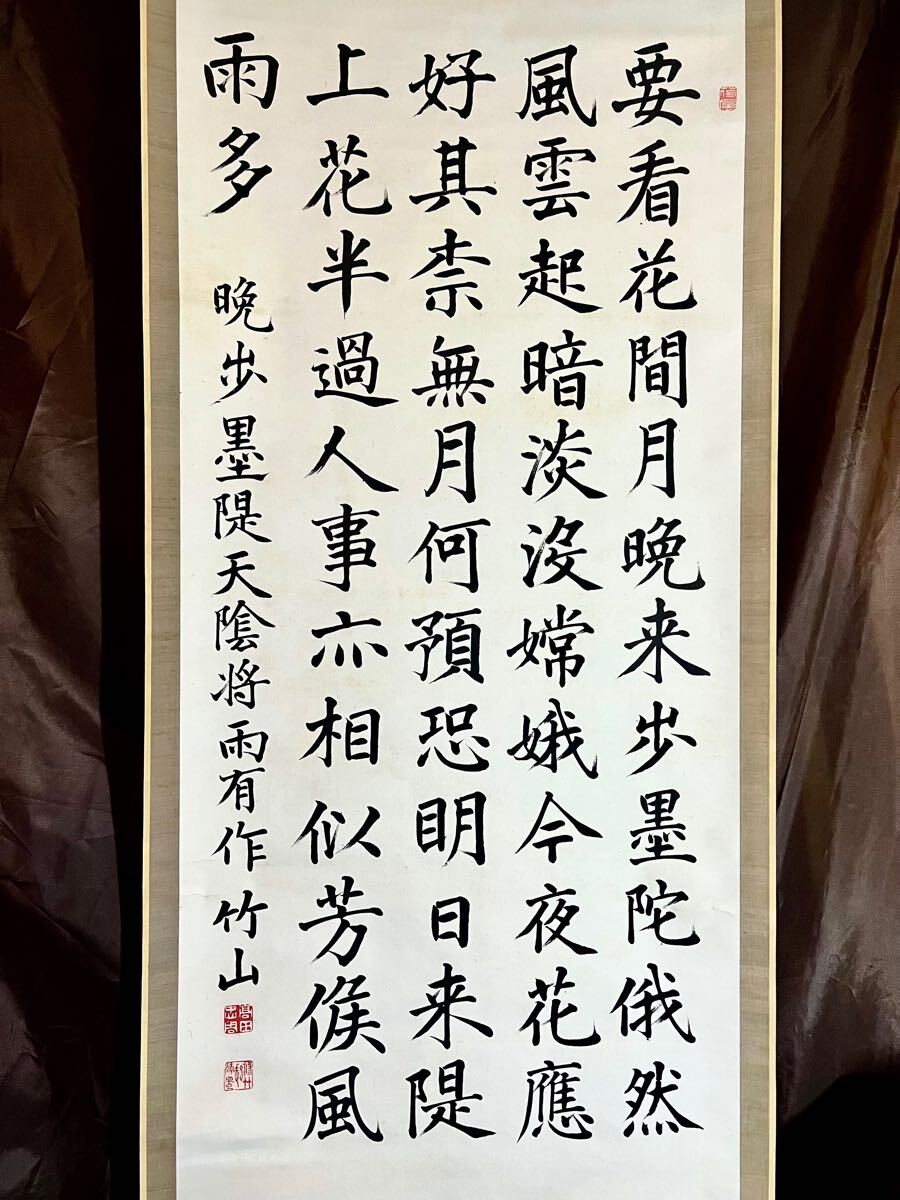 要看花間月晩来步墨陀俄然
風雲起暗淡没嫦娥今夜花應
好其柰無月何預恐明日来隄
上花半過人事亦相似芳候風
雨多
晩步墨隄天陰将雨有作 竹山